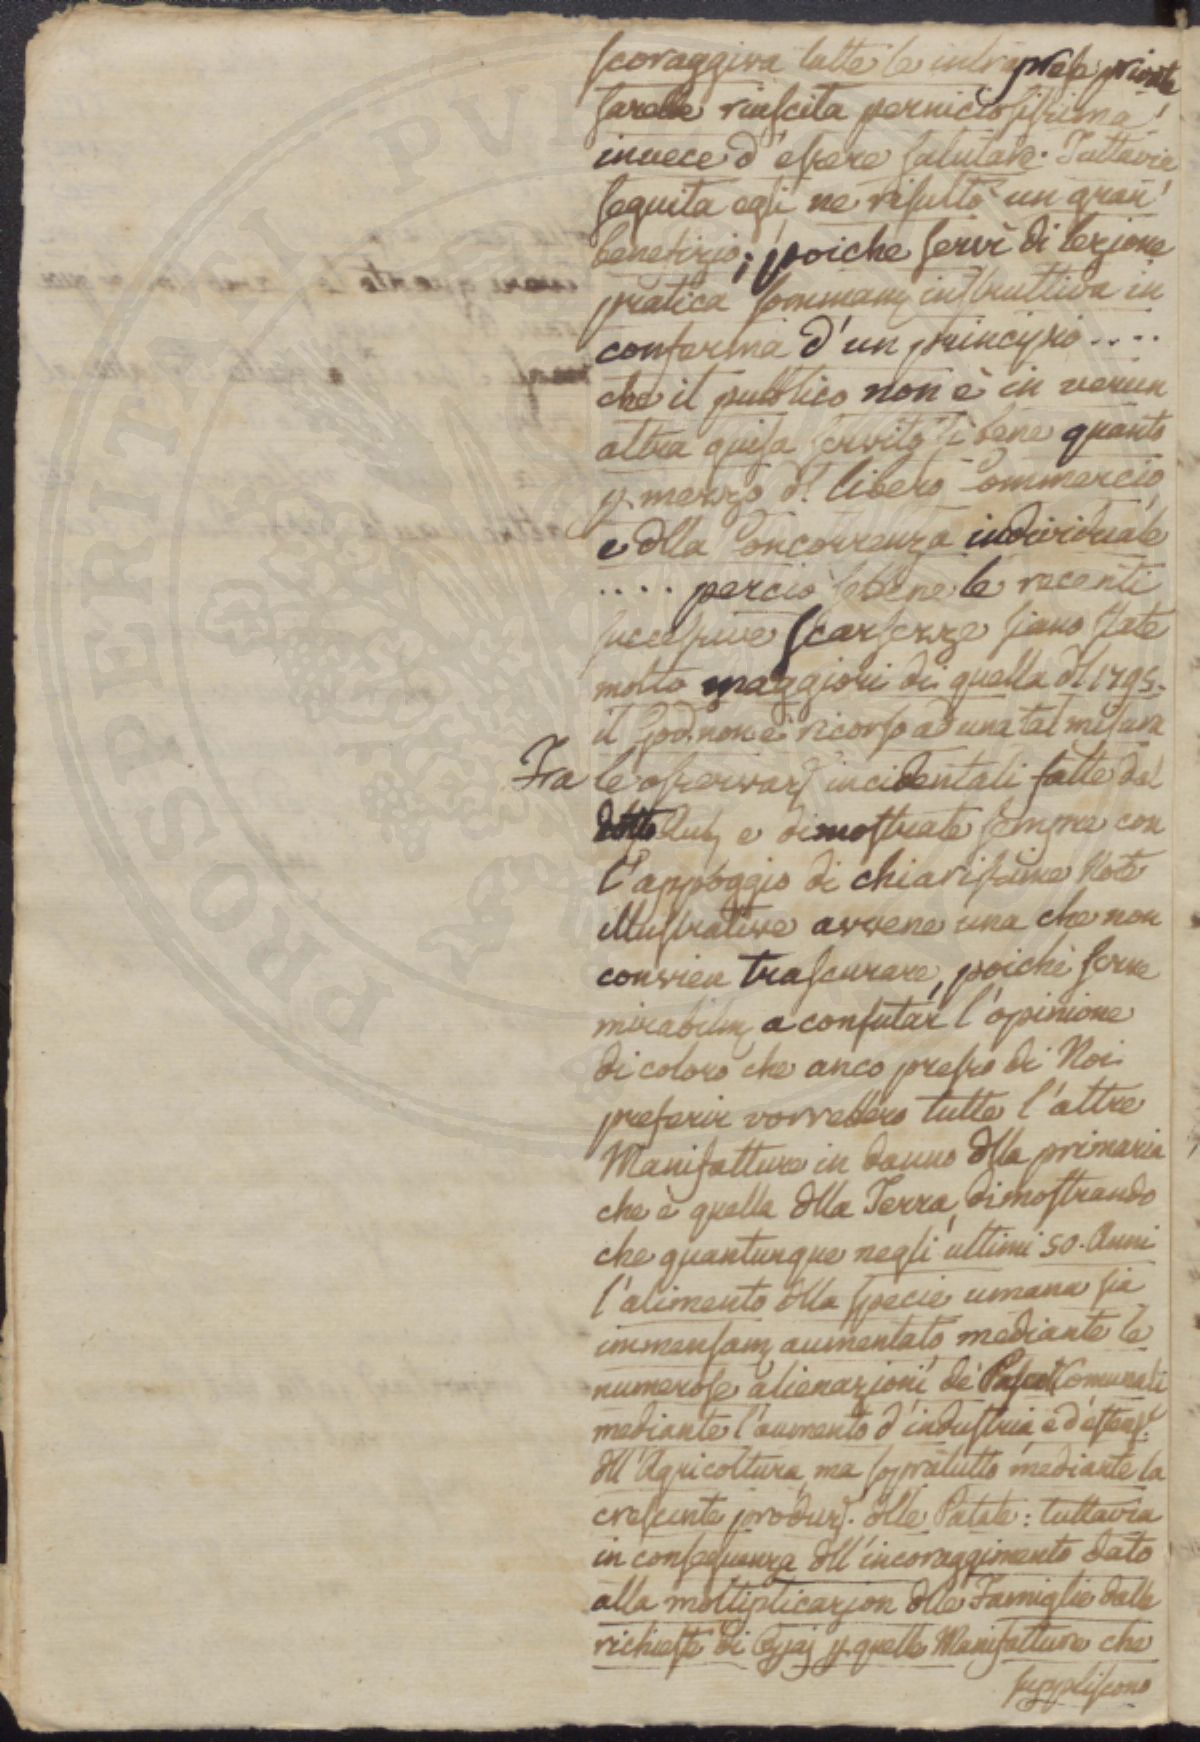 scoraggiva tutte le intraprese private
sarebbe riuscita perniciosissima
invece d'essere salutare. Tuttavia
seguita egli ne risultò un gran
benefizio; poiche servì di lezione
pratica sommam. instruttiva in
conferma d'un principio....
che il pubblico non è in verun
altra guisa servito sì bene quanto
p. mezzo dl libero Commercio
e dlla Concorrenza individuale
.... perciò sebene le recenti
successive scarsezze siano state
molto maggiori di quella dl 1795.
il God. non è ricorso ad una tal misura
Fra le osservaz. incidentali fatte dal
dotto e dimostrate sempre con
l'appoggio di chiarissime Note
illustrative avvene una che non
convien trascurare, poichè serve
mirabilm. a confutar l'opinione
di coloro che anco presso di Noi
preferir vorrebbero tutte l'altre
Manifatture in danno dlla primaria
che è quella dlla Terra, dimostrando
che quantunque negli ultimi 50. Anni
l'alimento dlla specie umana sia
immensam. aumentato mediante le
numerose alienazioni de' Pascoli Comunali
mediante l'aumento d'industria e d'estens.
dll'Agricoltura, ma sopratutto mediante la
crescente produz. dlle Patate: tuttavia
in conseguenza dll'incoraggimento dato
alla moltiplicazion dlle Famiglie dalle
richieste di p. quelle Manifatture che
suppliscono
PROSPERITATI